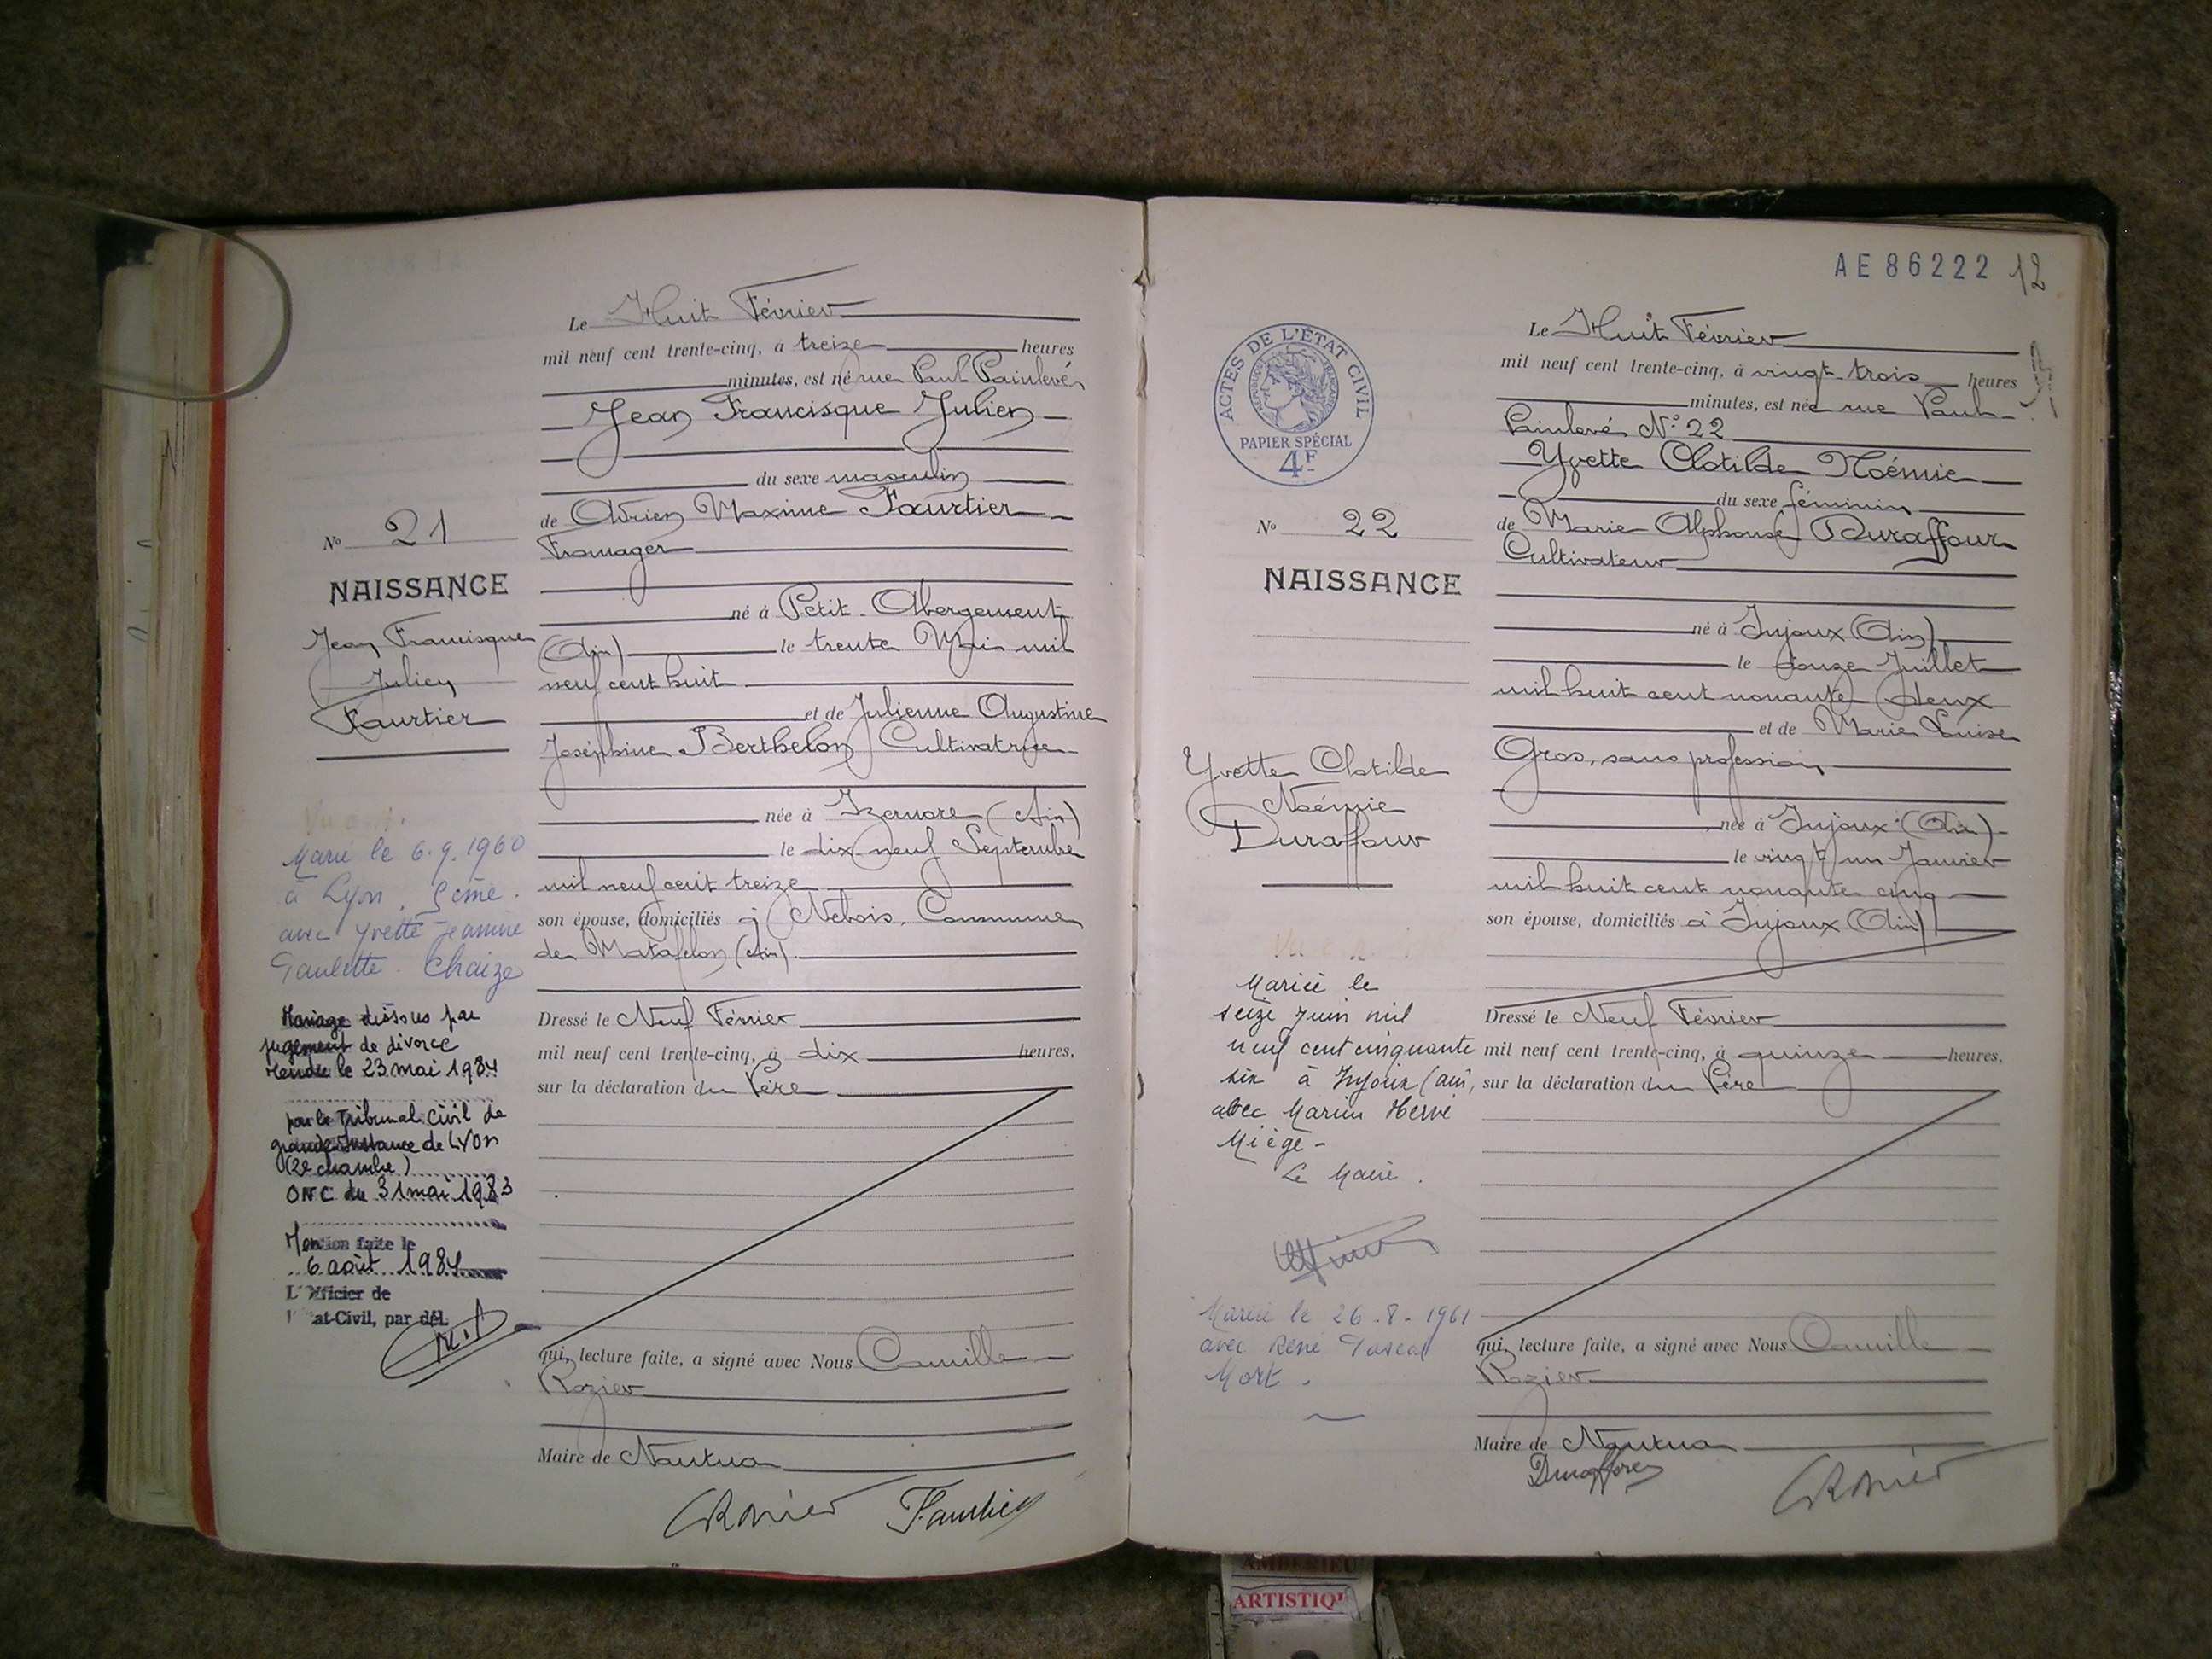 Le Huit Février
mil neuf cent trente-cinq, à treize heures
minutes, est né rue Paul Painlevé,
Jean Francisque Julien
du sexe masculin
de Adrien Maxime Faurtier
Fromager
né à Petit-Abergement
(Ain) le trente Mai mil
neuf cent huit
et de Julienne Augustine
Joséphine Berthelon, Cultivatrice
née à Izernore (Ain)
le dix-neuf Septembre
mil neuf cent treize
son épouse, domiciliés à Nebois, Commune
de Matafelon (Ain).
Dressé le Neuf Février
mil neuf cent trente-cinq, à dix heures,
sur la déclaration du Père
qui, lecture faite, a signé avec Nous Camille
Rozier
Maire de Nantua
CRozier Faurtier
No 21
NAISSANCE
Jean Francisque
Julien
Faurtier
Marié le 6.9.1960
à Lyon, 5eme.
avec Yvette Jeanine
Paulette Chaize
Mariage dissous par
jugement de divorce
rendu le 23 mai 1984
par le Tribunal Civil de
grande Instance de LYON
(2e chambre)
ONC du 31 mai 1983
Mention faite le
6 août 1984
L'Officier de
l'Etat-Civil, par dél.
AE 86222 12
ACTES DE L'ÉTAT CIVIL
PAPIER SPÉCIAL
4F
Le Huit Février
mil neuf cent trente-cinq, à vingt-trois heures
minutes, est née rue Paul
Painlevé N° 22
Yvette Clotilde Noémie
du sexe féminin
de Marie Alphonse Duraffour
Cultivateur
né à Injoux (Ain)
le douze Juillet
mil huit cent nonante deux
et de Marie Louise
Gros, sans profession,
née à Injoux (Ain)
le vingt un Janvier
mil huit cent nonante cinq
son épouse, domiciliés à Injoux (Ain)
Dressé le Neuf Février
mil neuf cent trente-cinq, à quinze heures,
sur la déclaration du Père
qui, lecture faite, a signé avec Nous Camille
Rozier
Maire de Nantua
Duraffour
CRozier
No 22
NAISSANCE
Yvette Clotilde
Noémie
Duraffour
Mariée le
seize juin mil
neuf cent cinquante
six à Injoux (ain,
avec Marius Hervé
Miège-
Le Maire.
Mariée le 26-8-1961
avec René Pascal
Mort.
ARTISTIQ